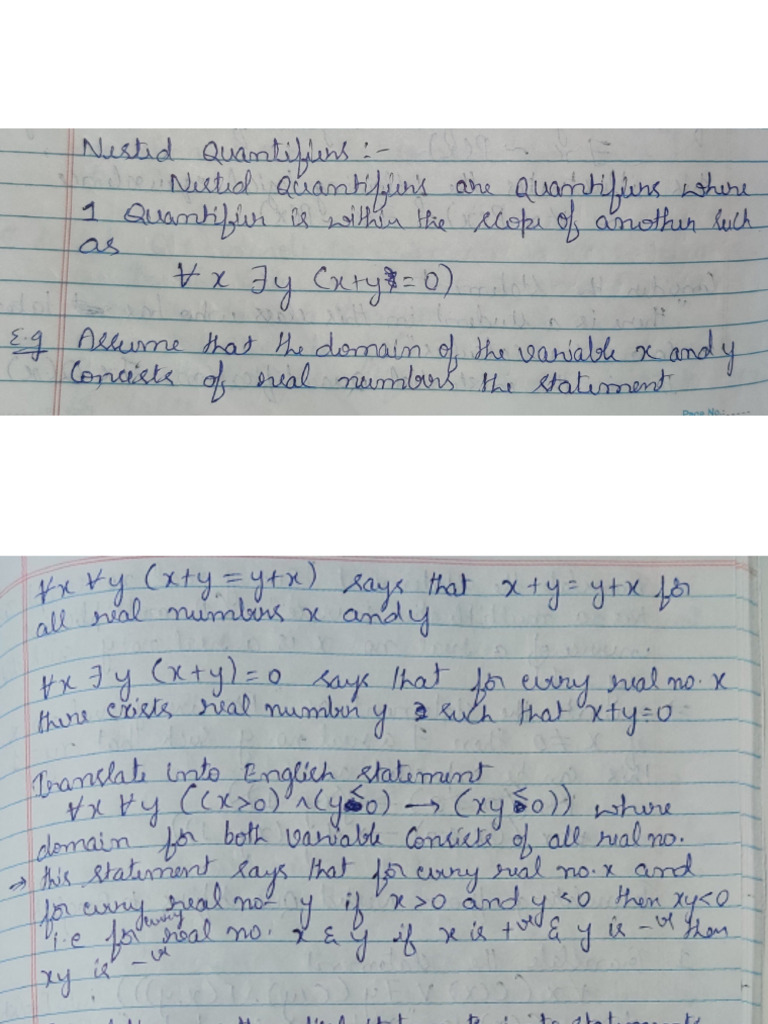 Nested Quantifiers :-
Nested Quantifiers are Quantifiers where
1 Quantifier is within the scope of another such
as
∀ x ∃ y (x+y = 0)
E.g Assume that the domain of the variable x and y
Consists of real numbers the statement
Page No.:.....
∀x ∀y (x+y = y+x) says that x+y = y+x for
all real numbers x and y
∀x ∃ y (x+y) = 0 says that for every real no. x
there exists real number y such that x+y=0
Translate into English statement
∀x ∀y ((x>0) ∧ (y<0) → (xy<0)) where
domain for both variable Consists of all real no.
→ this statement says that for every real no. x and
for every real no y if x>0 and y<0 then xy<0
i.e for every real no. x & y if x is +ve & y is -ve then
xy is -ve